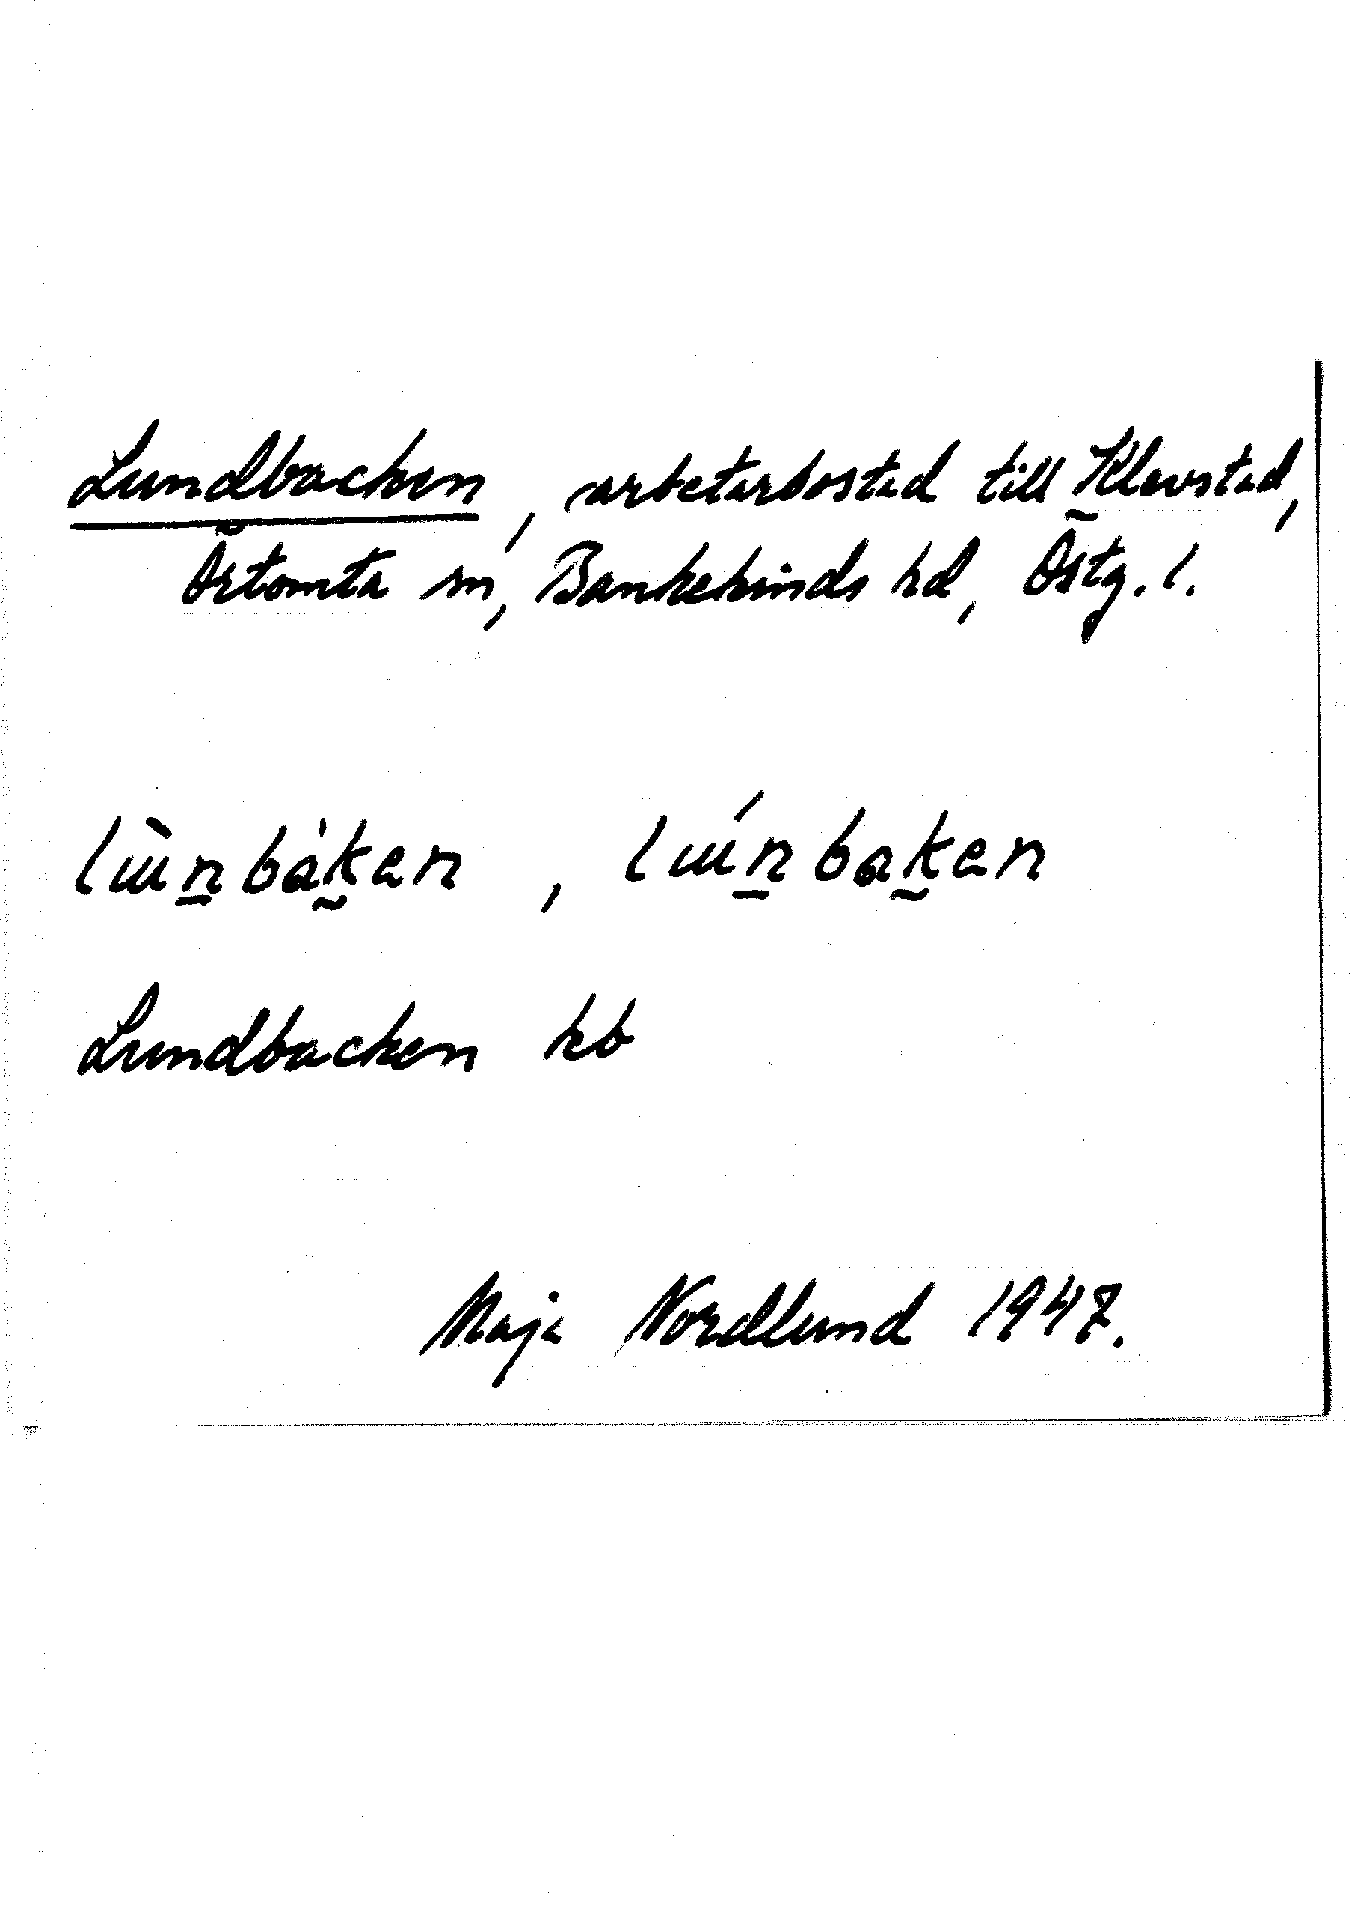 Lundbacken, arbetarbostad till Klevstad,
Örtomta sn, Bankekinds hd, Östg. l.
lɯ̀n̠bȧk̰en, lɯ́n̠bak̰en
Lundbacken kb
Maja Nordlund 1947.